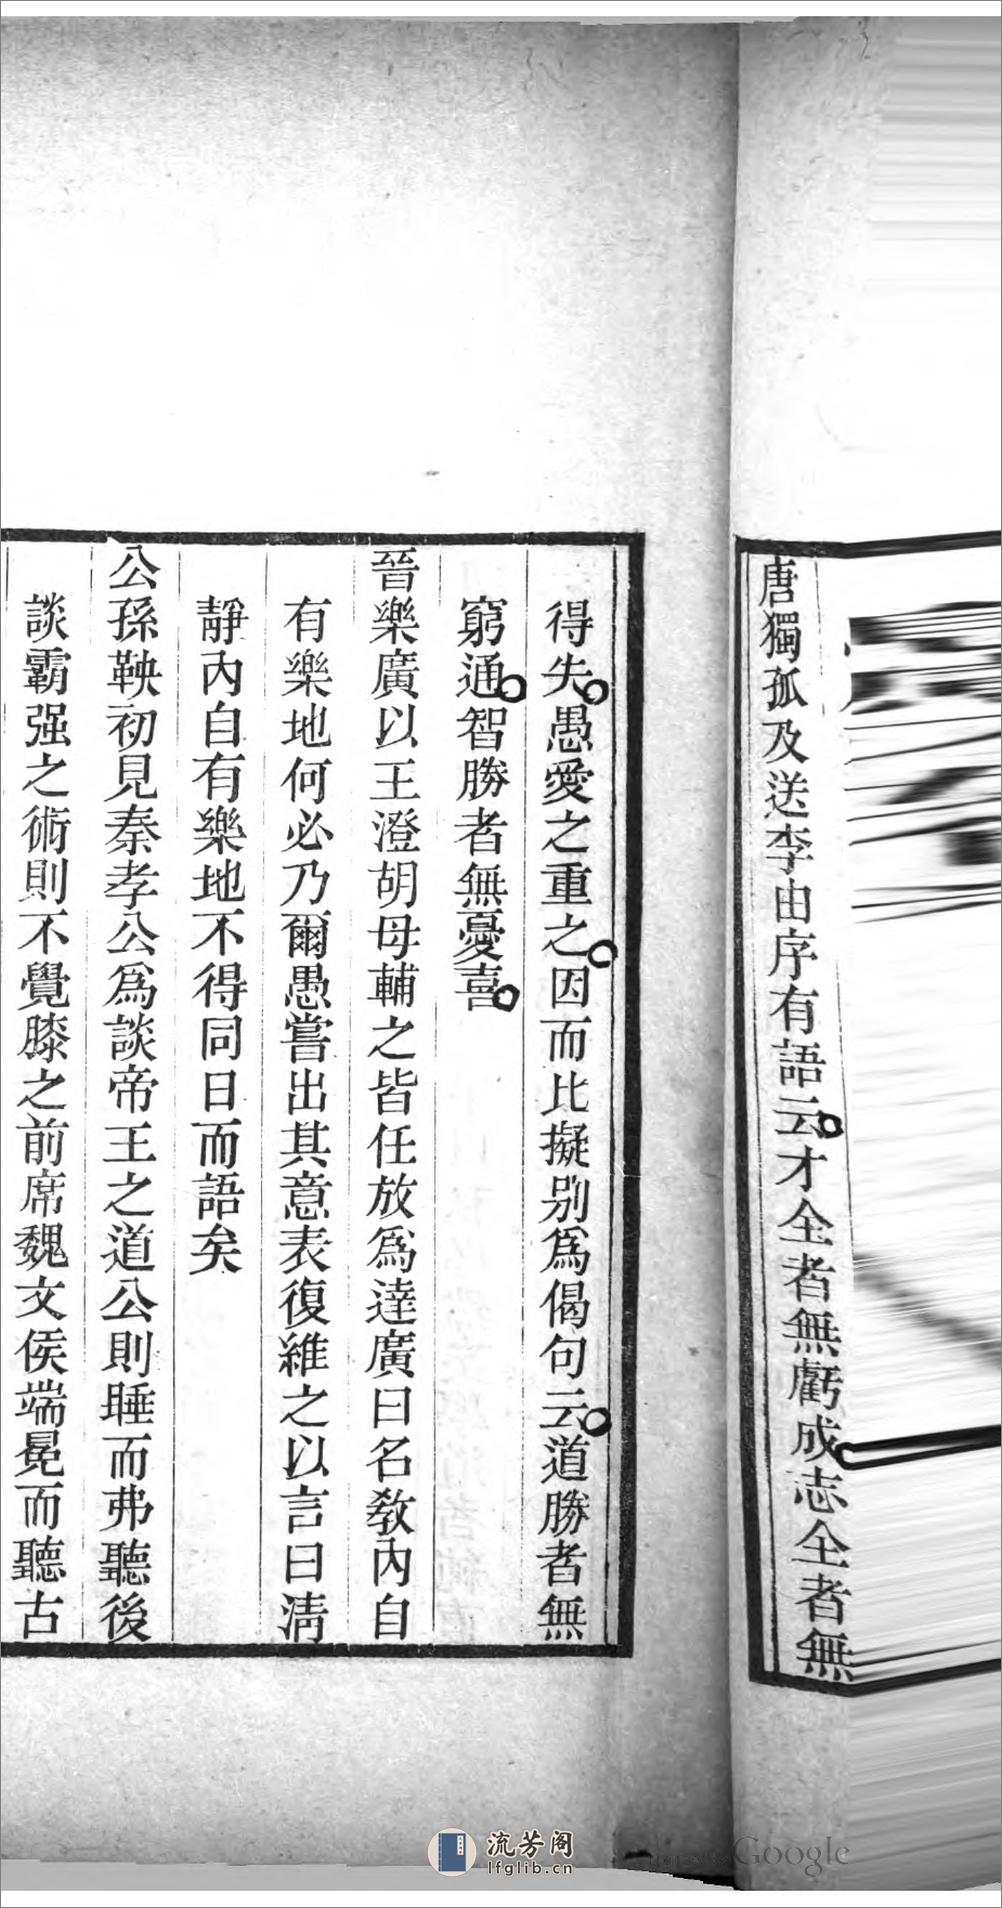 唐獨孤及送李由序有語云才全者無虧成志全者無
得失愚愛之重之因而比擬别爲偈句云道勝者無
窮通智勝者無憂喜
晉樂廣以王澄胡母輔之皆任放爲達廣曰名教內自
有樂地何必乃爾愚嘗出其意表復維之以言曰清
靜內自有樂地不得同日而語矣
公孫鞅初見秦孝公爲談帝王之道公則睡而弗聽後
談霸强之術則不覺膝之前席魏文侯端冕而聽古
流芳阁
lfglib.cn
Google